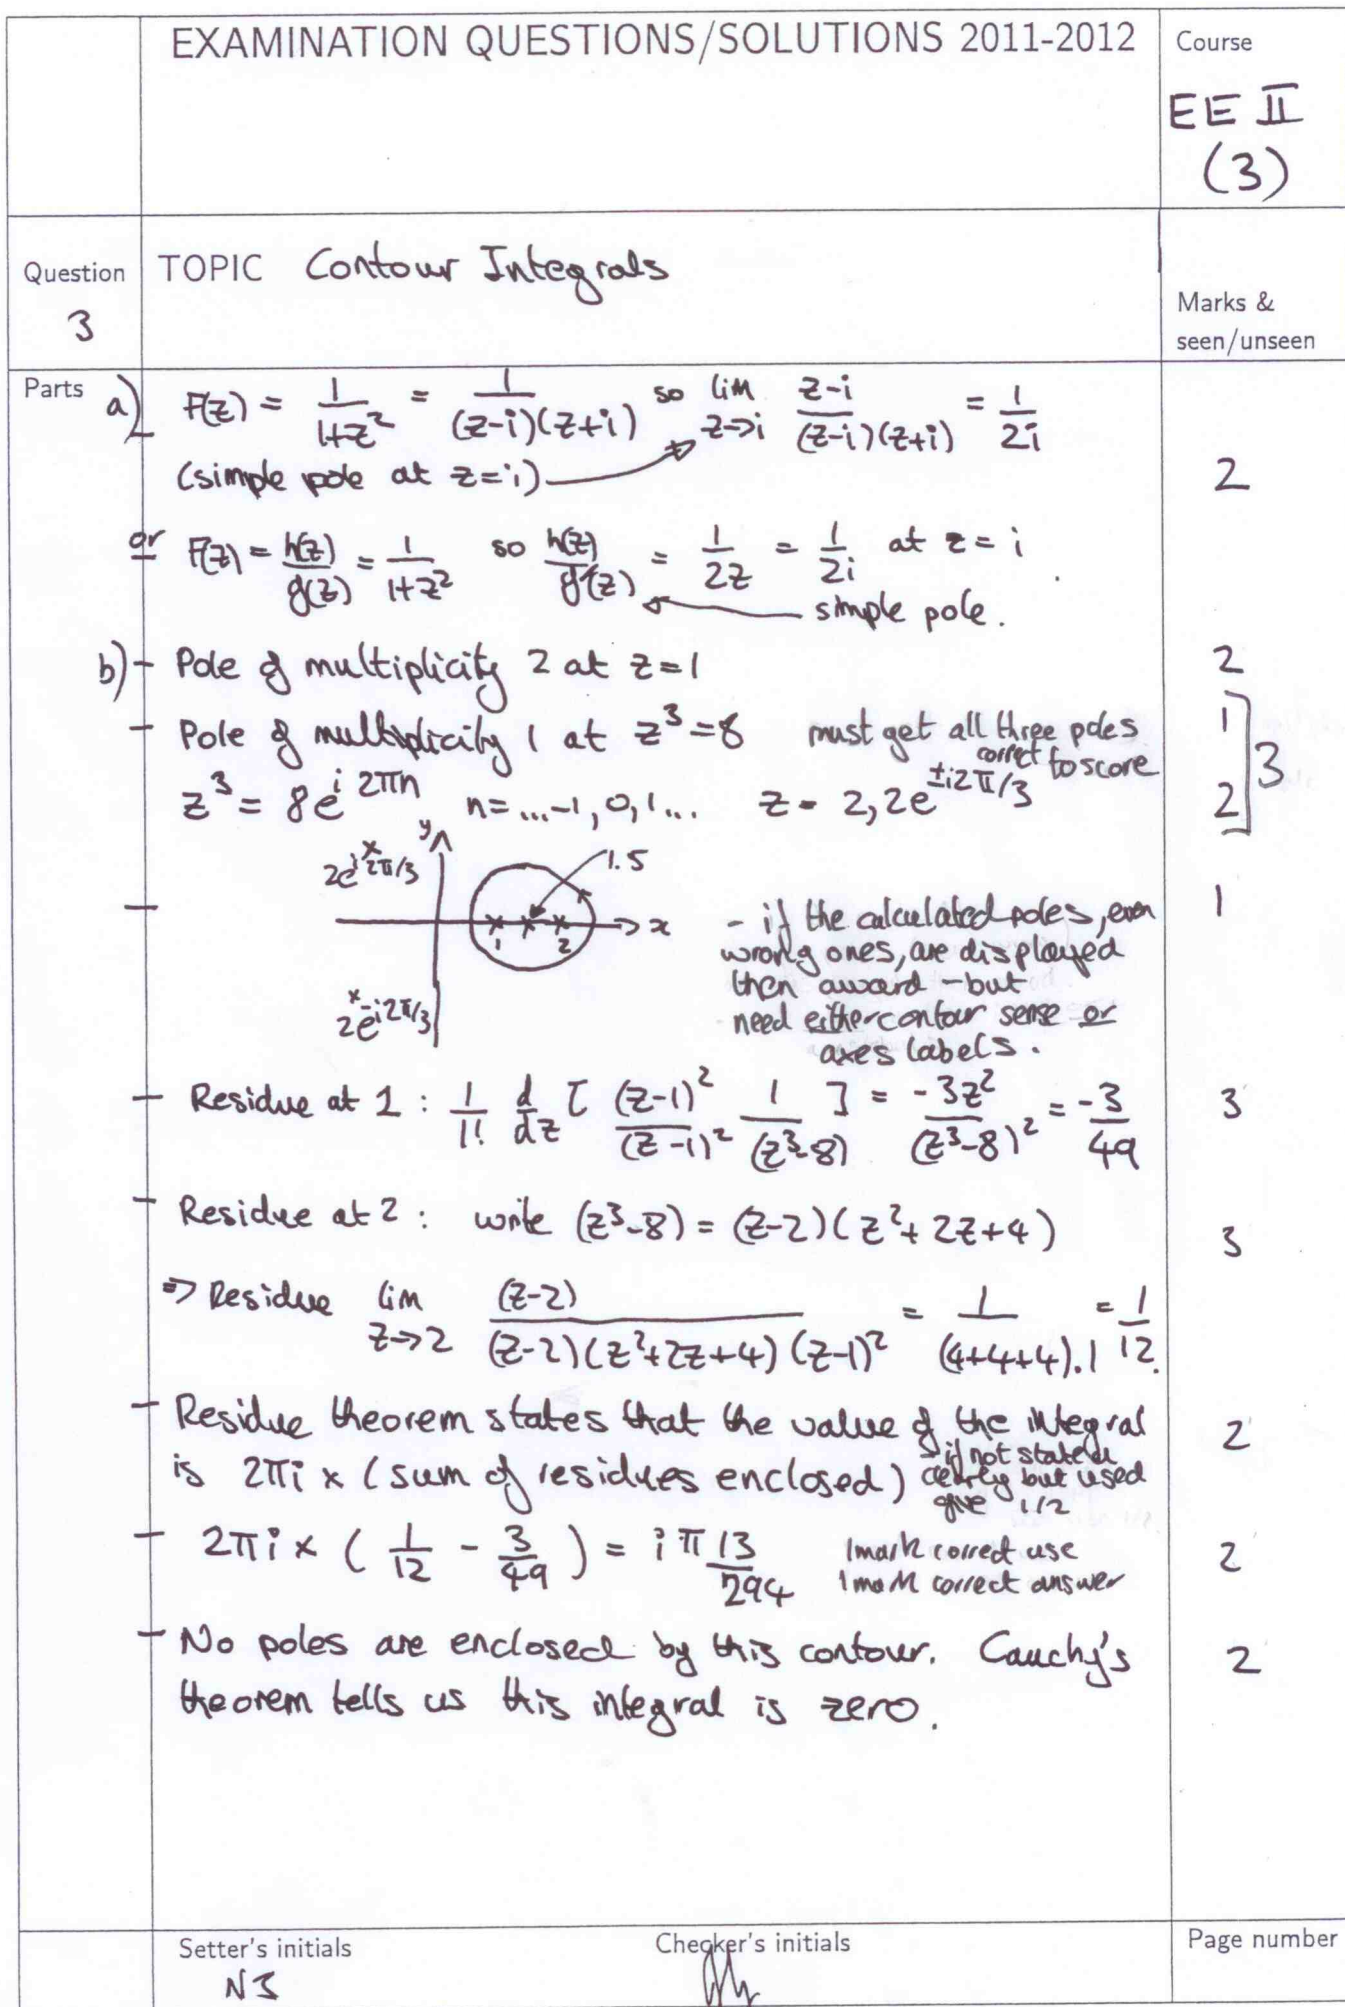 EXAMINATION QUESTIONS/SOLUTIONS 2011-2012
Course
EE II
(3)
Question
3
TOPIC Contour Integrals
Marks &
seen/unseen
Parts
a) F(z) = 1/(1+z²) = 1/((z-i)(z+i)) so lim z→i (z-i)/((z-i)(z+i)) = 1/2i
(simple pole at z=i)
2
or F(z) = h(z)/g(z) = 1/(1+z²) so h(z)/g'(z) = 1/2z = 1/2i at z = i
simple pole.
b) - Pole of multiplicity 2 at z=1
2
- Pole of multiplicity 1 at z³=8 must get all three poles
correct to score
1
z³ = 8e^{i 2πn} n=...-1,0,1... z = 2, 2e^{±i2π/3}
2
3
y
2e^{i2π/3} × 1.5
- 1 2 x
2e^{-i2π/3} ×
- if the calculated poles, even
wrong ones, are displayed
then award - but
need either contour sense or
axes labels.
1
- Residue at 1 : 1/1! d/dz [ (z-1)²/(z-1)² 1/(z³-8) ] = -3z²/(z³-8)² = -3/49
3
- Residue at 2 : write (z³-8) = (z-2)(z²+2z+4)
3
⇒ Residue lim z→2 (z-2)/((z-2)(z²+2z+4)(z-1)²) = 1/((4+4+4).1) = 1/12.
- Residue theorem states that the value of the integral
2
is 2πi × (sum of residues enclosed)
- if not stated
clearly but used
give 1/2
- 2πi × ( 1/12 - 3/49 ) = iπ 13/294
1 mark correct use
1 mark correct answer
2
- No poles are enclosed by this contour. Cauchy's
2
theorem tells us this integral is zero.
Setter's initials
Checker's initials
Page number